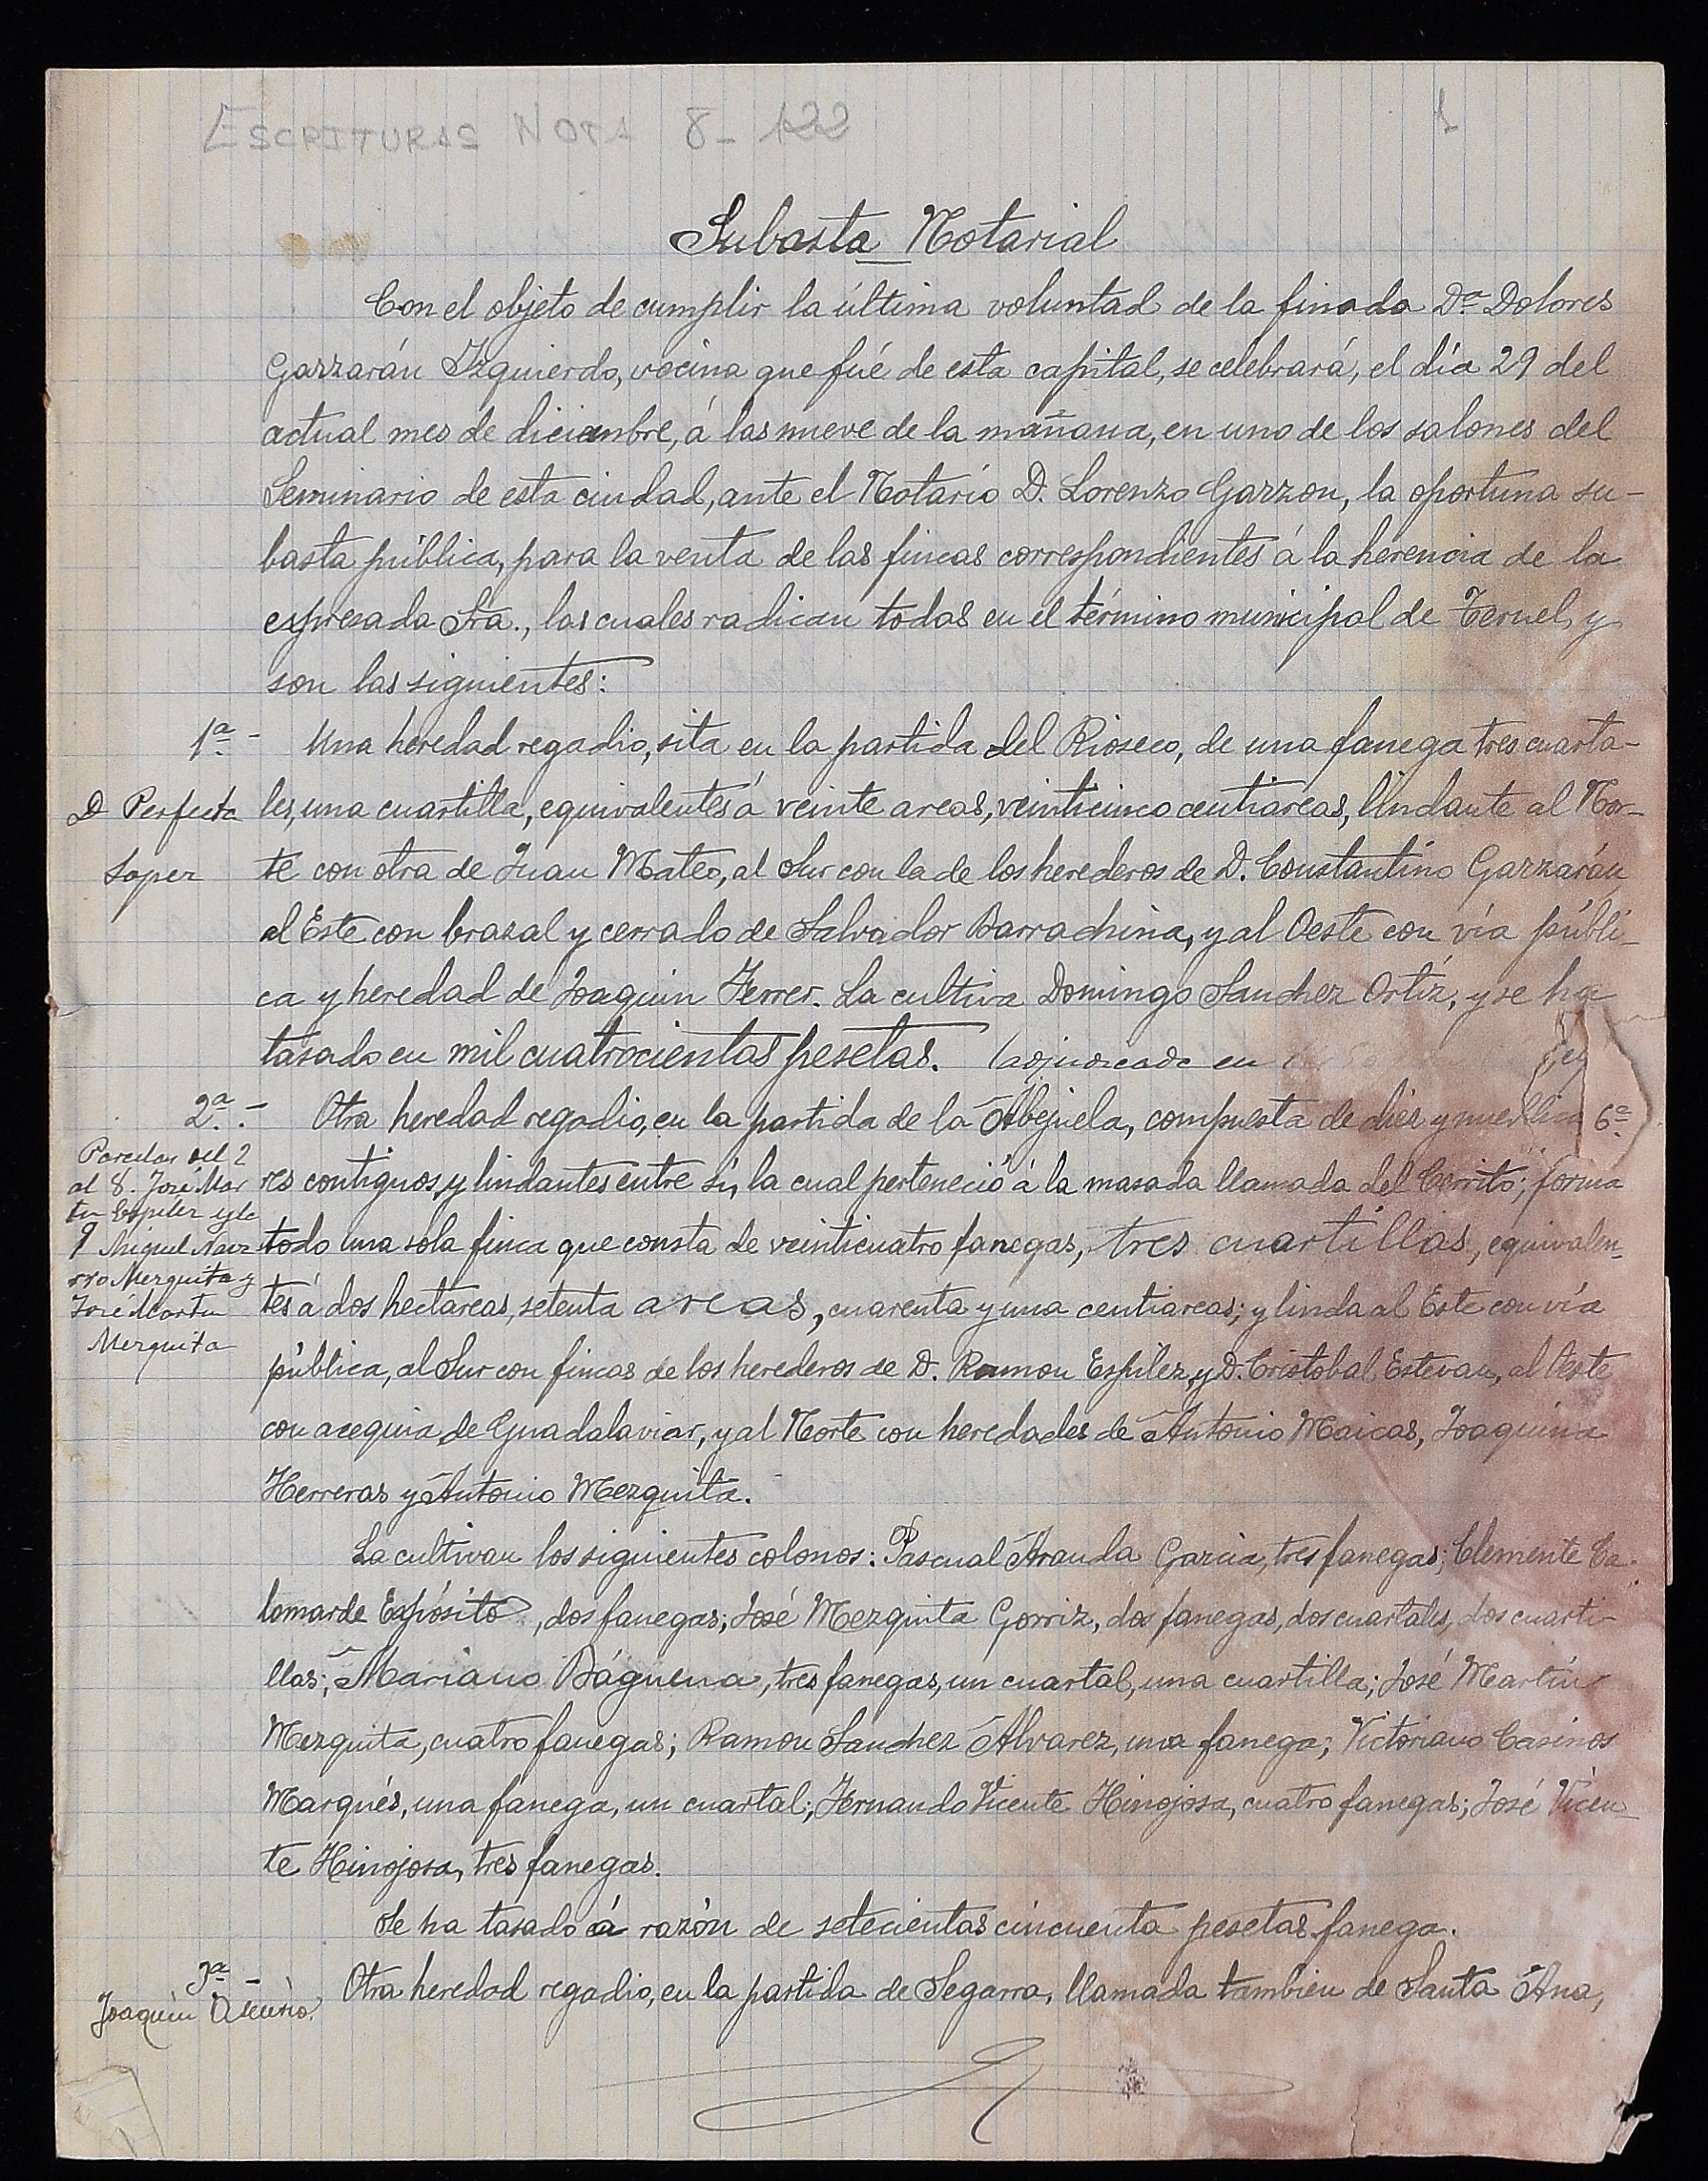 ESCRITURAS NOTA 8-122
1
Subasta Notarial
Con el objeto de cumplir la última voluntad de la finada Dª Dolores
Garzarán Izquierdo, vecina que fué de esta capital, se celebrará, el día 29 del
actual mes de diciembre, á las nueve de la mañana, en uno de los salones del
Seminario de esta ciudad, ante el Notario D. Lorenzo Garzon, la oportuna su-
basta pública, para la venta de las fincas correspondientes á la herencia de la
expresada Sra., las cuales radican todas en el término municipal de Teruel, y
son las siguientes:
1ª - Una heredad regadio, sita en la partida del Rioseco, de una fanega tres cuarta-
D Perfecto
Lopez
les, una cuartilla, equivalentes á veinte areas, veinticinco centiareas, lindante al Nor-
te con otra de Juan Mateo, al Sur con la de los herederos de D. Constantino Garzarán
al Este con brazal y cerrado de Salvador Barrachina, y al Oeste con vía públi-
ca y heredad de Joaquin Ferrer. La cultiva Domingo Sanchez Ortiz, y se ha
tasado en mil cuatrocientas pesetas. (adjudicada en
2ª - Otra heredad regadio, en la partida de la Abejuela, compuesta de diez y 6ª
Parcelas del 2
al 8. José Mar
tin Espilez y la
9 Miguel Nava
rro Mezquita y
José Martin
Mezquita
res contiguos y lindantes entre sí, la cual perteneció á la masada llamada del Cerrito; forma
todo una sola finca que consta de veinticuatro fanegas, tres cuartillas, equivalen-
tes á dos hectareas, setenta areas, cuarenta y una centiareas; y linda al Este con vía
pública, al Sur con fincas de los herederos de D. Ramon Espilez, y D. Cristobal Estevan, al Oeste
con acequia de Guadalaviar, y al Norte con heredades de Antonio Maicas, Joaquina
Herreras y Antonio Mezquita.
La cultivan los siguientes colonos: Pascual Aranda Garcia, tres fanegas; Clemente Ca-
lomarde Expósito, dos fanegas; José Mezquita Gorriz, dos fanegas, dos cuartales, dos cuarti-
llas; Mariano Báguena, tres fanegas, un cuartal, una cuartilla; José Martín
Mezquita, cuatro fanegas; Ramon Sanchez Alvarez, una fanega; Victoriano Casinos
Marqués, una fanega, un cuartal; Fernando Vicente Hinojosa, cuatro fanegas; José Vicen-
te Hinojosa, tres fanegas.
Se ha tasado á razón de setecientas cincuenta pesetas fanega.
3ª - Otra heredad regadio, en la partida de Segarra, llamada tambien de Santa Ana,
Joaquin Asensio.